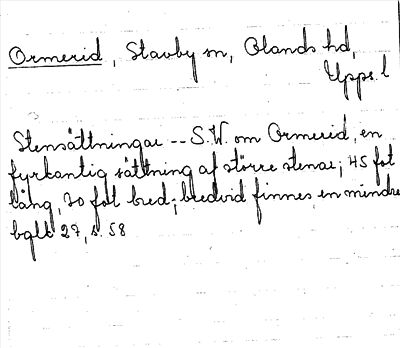 Ormerid, Stavby sn, Olands hd,
Upps. l
Stensättningar -- S.W. om Ormerid, en
fyrkantig sättning af större stenar; 45 fot
lång, 30 fot bred; bredvid finnes en mindre
bglt 27, s. 58